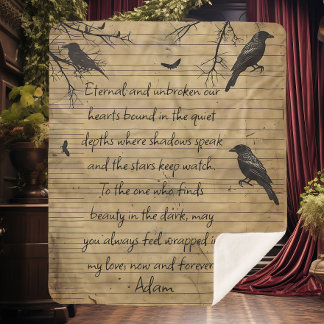 Eternal and unbroken our
hearts bound in the quiet
depths where shadows speak
and the stars keep watch.
To the one who finds
beauty in the dark, may
you always feel wrapped in
my love, now and forever.
Adam